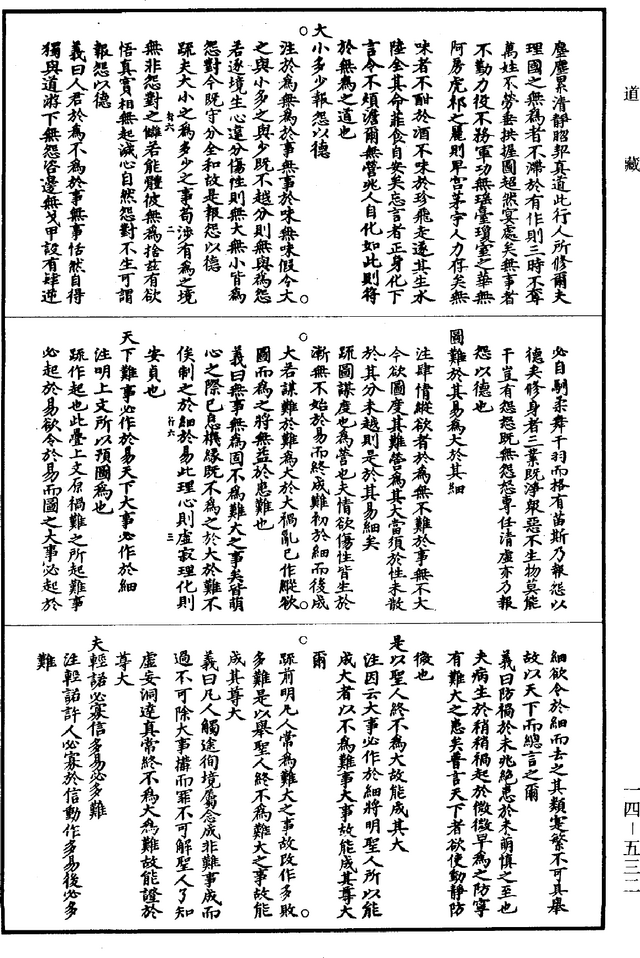 道藏
塵塵累清靜昭邦真道此行人所修爾夫
理國之無為者不滯於有作則三時不奪
萬姓不勞垂拱握圖超然宴處矣無事者
不勤力役不務軍功無瑤臺瓊室之華無
阿房虎祁之麗則卑宮茅宇人力存矣無
味者不酣於酒不味於珍飛走遂其生水
陸全其命菲食自安矣忘言者正身化下
言令不煩澹爾無營兆人自化如此則符
於無為之道也
大小多少報怨以德
注於為無為於事無事於味無味假令大
之與小多之與少既不越分則無與為怨
若逐境生心違分傷性則無大無小皆為
怨對今既守分全和故是報怨以德
疏夫大小之為多少之事苟涉有為之境
無非怨對之讎若能體彼無為捨茲有欲
悟真實相無起滅心自然怨對不生可謂
報怨以德
義曰人君於為不為於事無事恬然自得
獨與道游下無怨咨邊無戈甲設有肆逆
必自馴柔舞干羽而格有苗斯乃報怨以
德矣修身者三業既淨眾惡不生物莫能
干豈有怨怒既無怨怒專任清虛亦乃報
怨以德也
圖難於其易為大於其細
注肆情縱欲者於為無不難於事無不大
今欲圖度其難營為其大當須於性未散
於其分未越則是於其易細矣
疏圖謀度也為營也夫情欲傷性皆生於
漸無不始於易而終成難初於細而後成
大若謀難於難為大於大禍亂已作縱欲
圖而為之將無益於患難也
義曰無事無為固不為難大之事矣皆萌
心之際已息機緣既不為之於大於難不
俟制之於細於易此理心則虛寂理化則
安貞也
天下難事必作於易天下大事必作於細
注明上文所以預圖為也
疏作起也此疊上文原禍難之所起難事
必起於易欲令於易而圖之大事必起於
細欲令於細而去之其類寔繁不可具舉
故以天下而總言之爾
義曰防禍於未兆絕患於未萌慎之至也
夫病生於稍稍禍起於微微早為之防寧
有難大之患矣普言天下者欲使動靜防
微也
是以聖人終不為大故能成其大
注因云大事必作於細將明聖人所以能
成大者以不為難事大事故能成其尊大
爾
疏前明凡人常為難大之事故改作多敗
多難是以舉聖人終不為難大之事故能
成其尊大
義曰凡人觸途徇境屬念咸非難事成而
過不可除大事搆而罪不可解聖人了知
虛妄洞達真常終不為大為難故能證於
尊大
夫輕諾必寡信多易必多難
注輕諾許人必寡於信動作多易後必多
難
一四—五三二